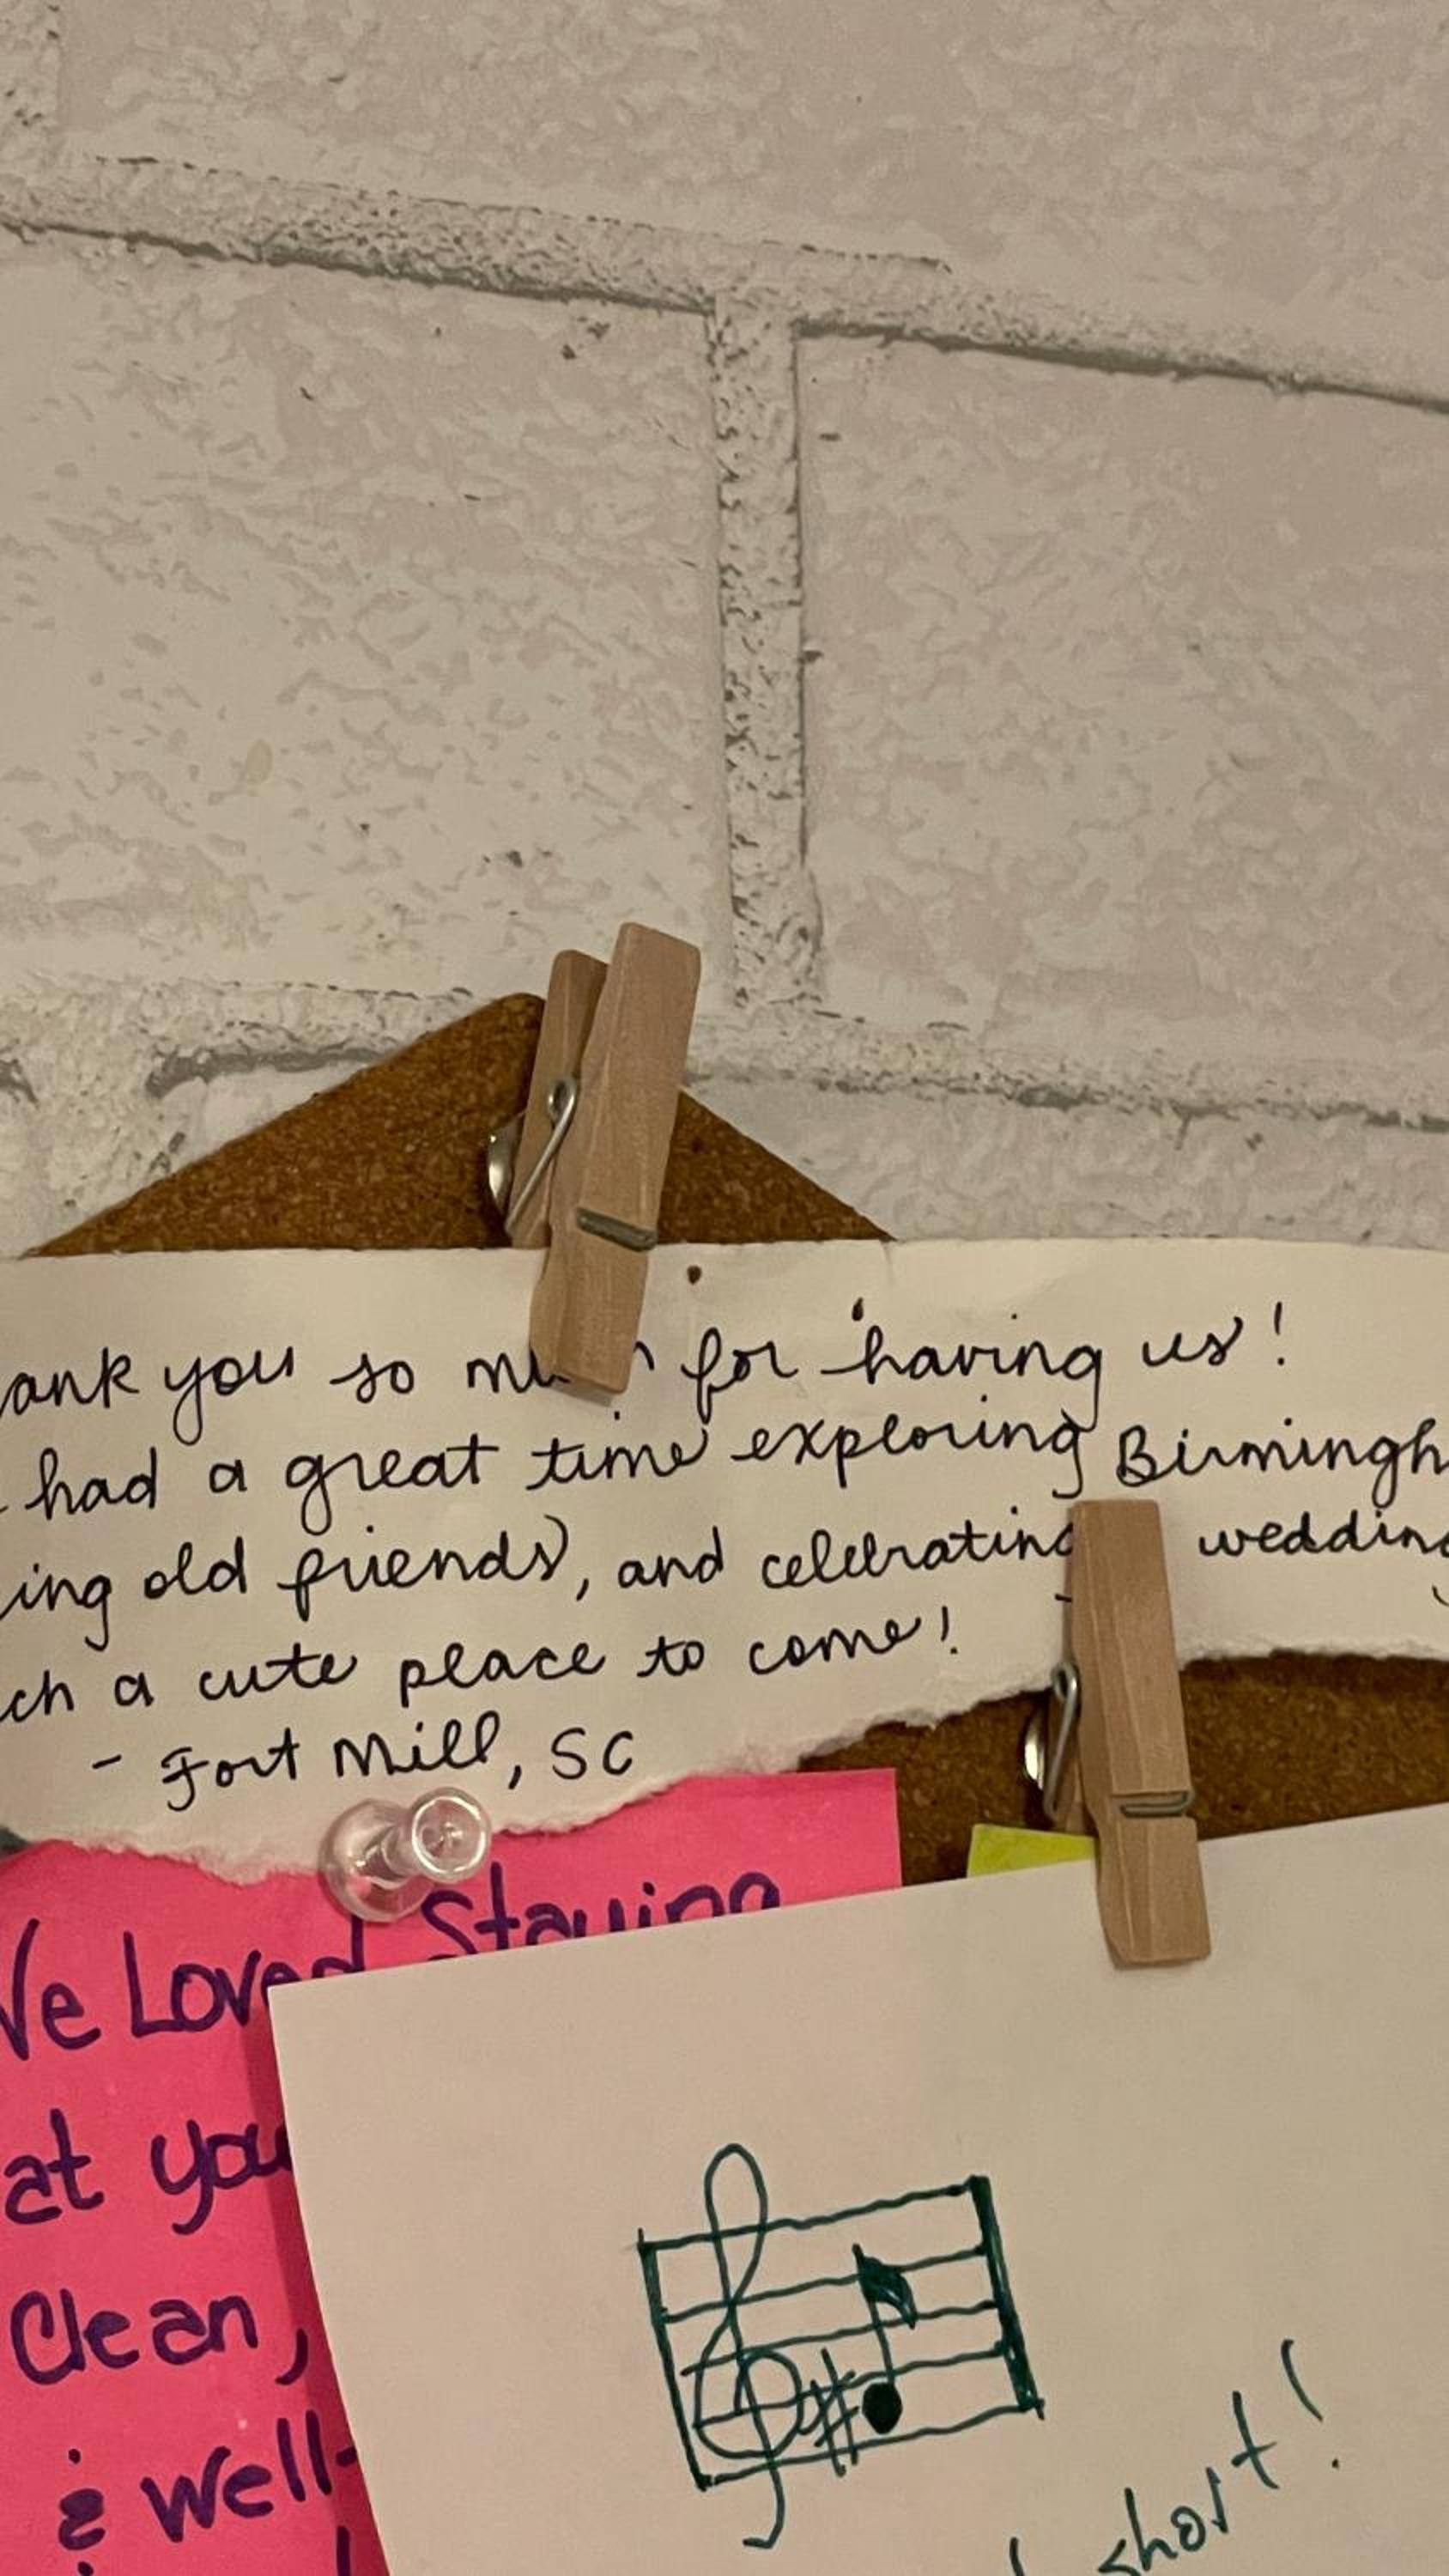 ank you so mu h for having us!
had a great time exploring Birmingh
ing old friends, and celebrating wedding
ch a cute place to come!
- Fort Mill, SC
We Loved Staying
at you
Clean,
& well-
short!